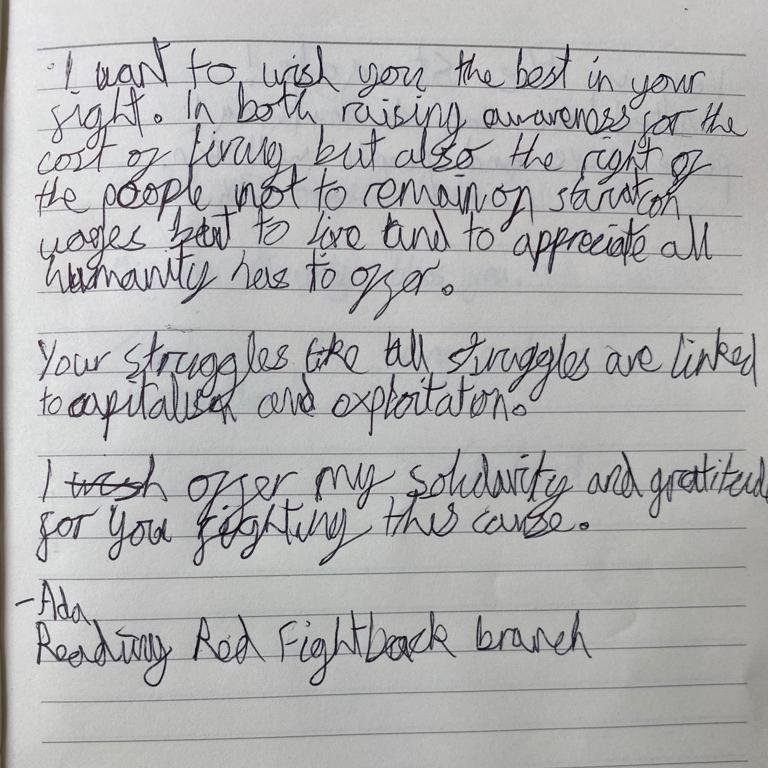 I want to wish you the best in your
fight. In both raising awareness for the
cost of living but also the right of
the people not to remain on starvation
wages but to live and to appreciate all
humanity has to offer.
Your struggles like all struggles are linked
to capitalism and exploitation.
I wish offer my solidarity and gratitude
for you fighting this cause.
-Ada
Reading Red Fightback branch